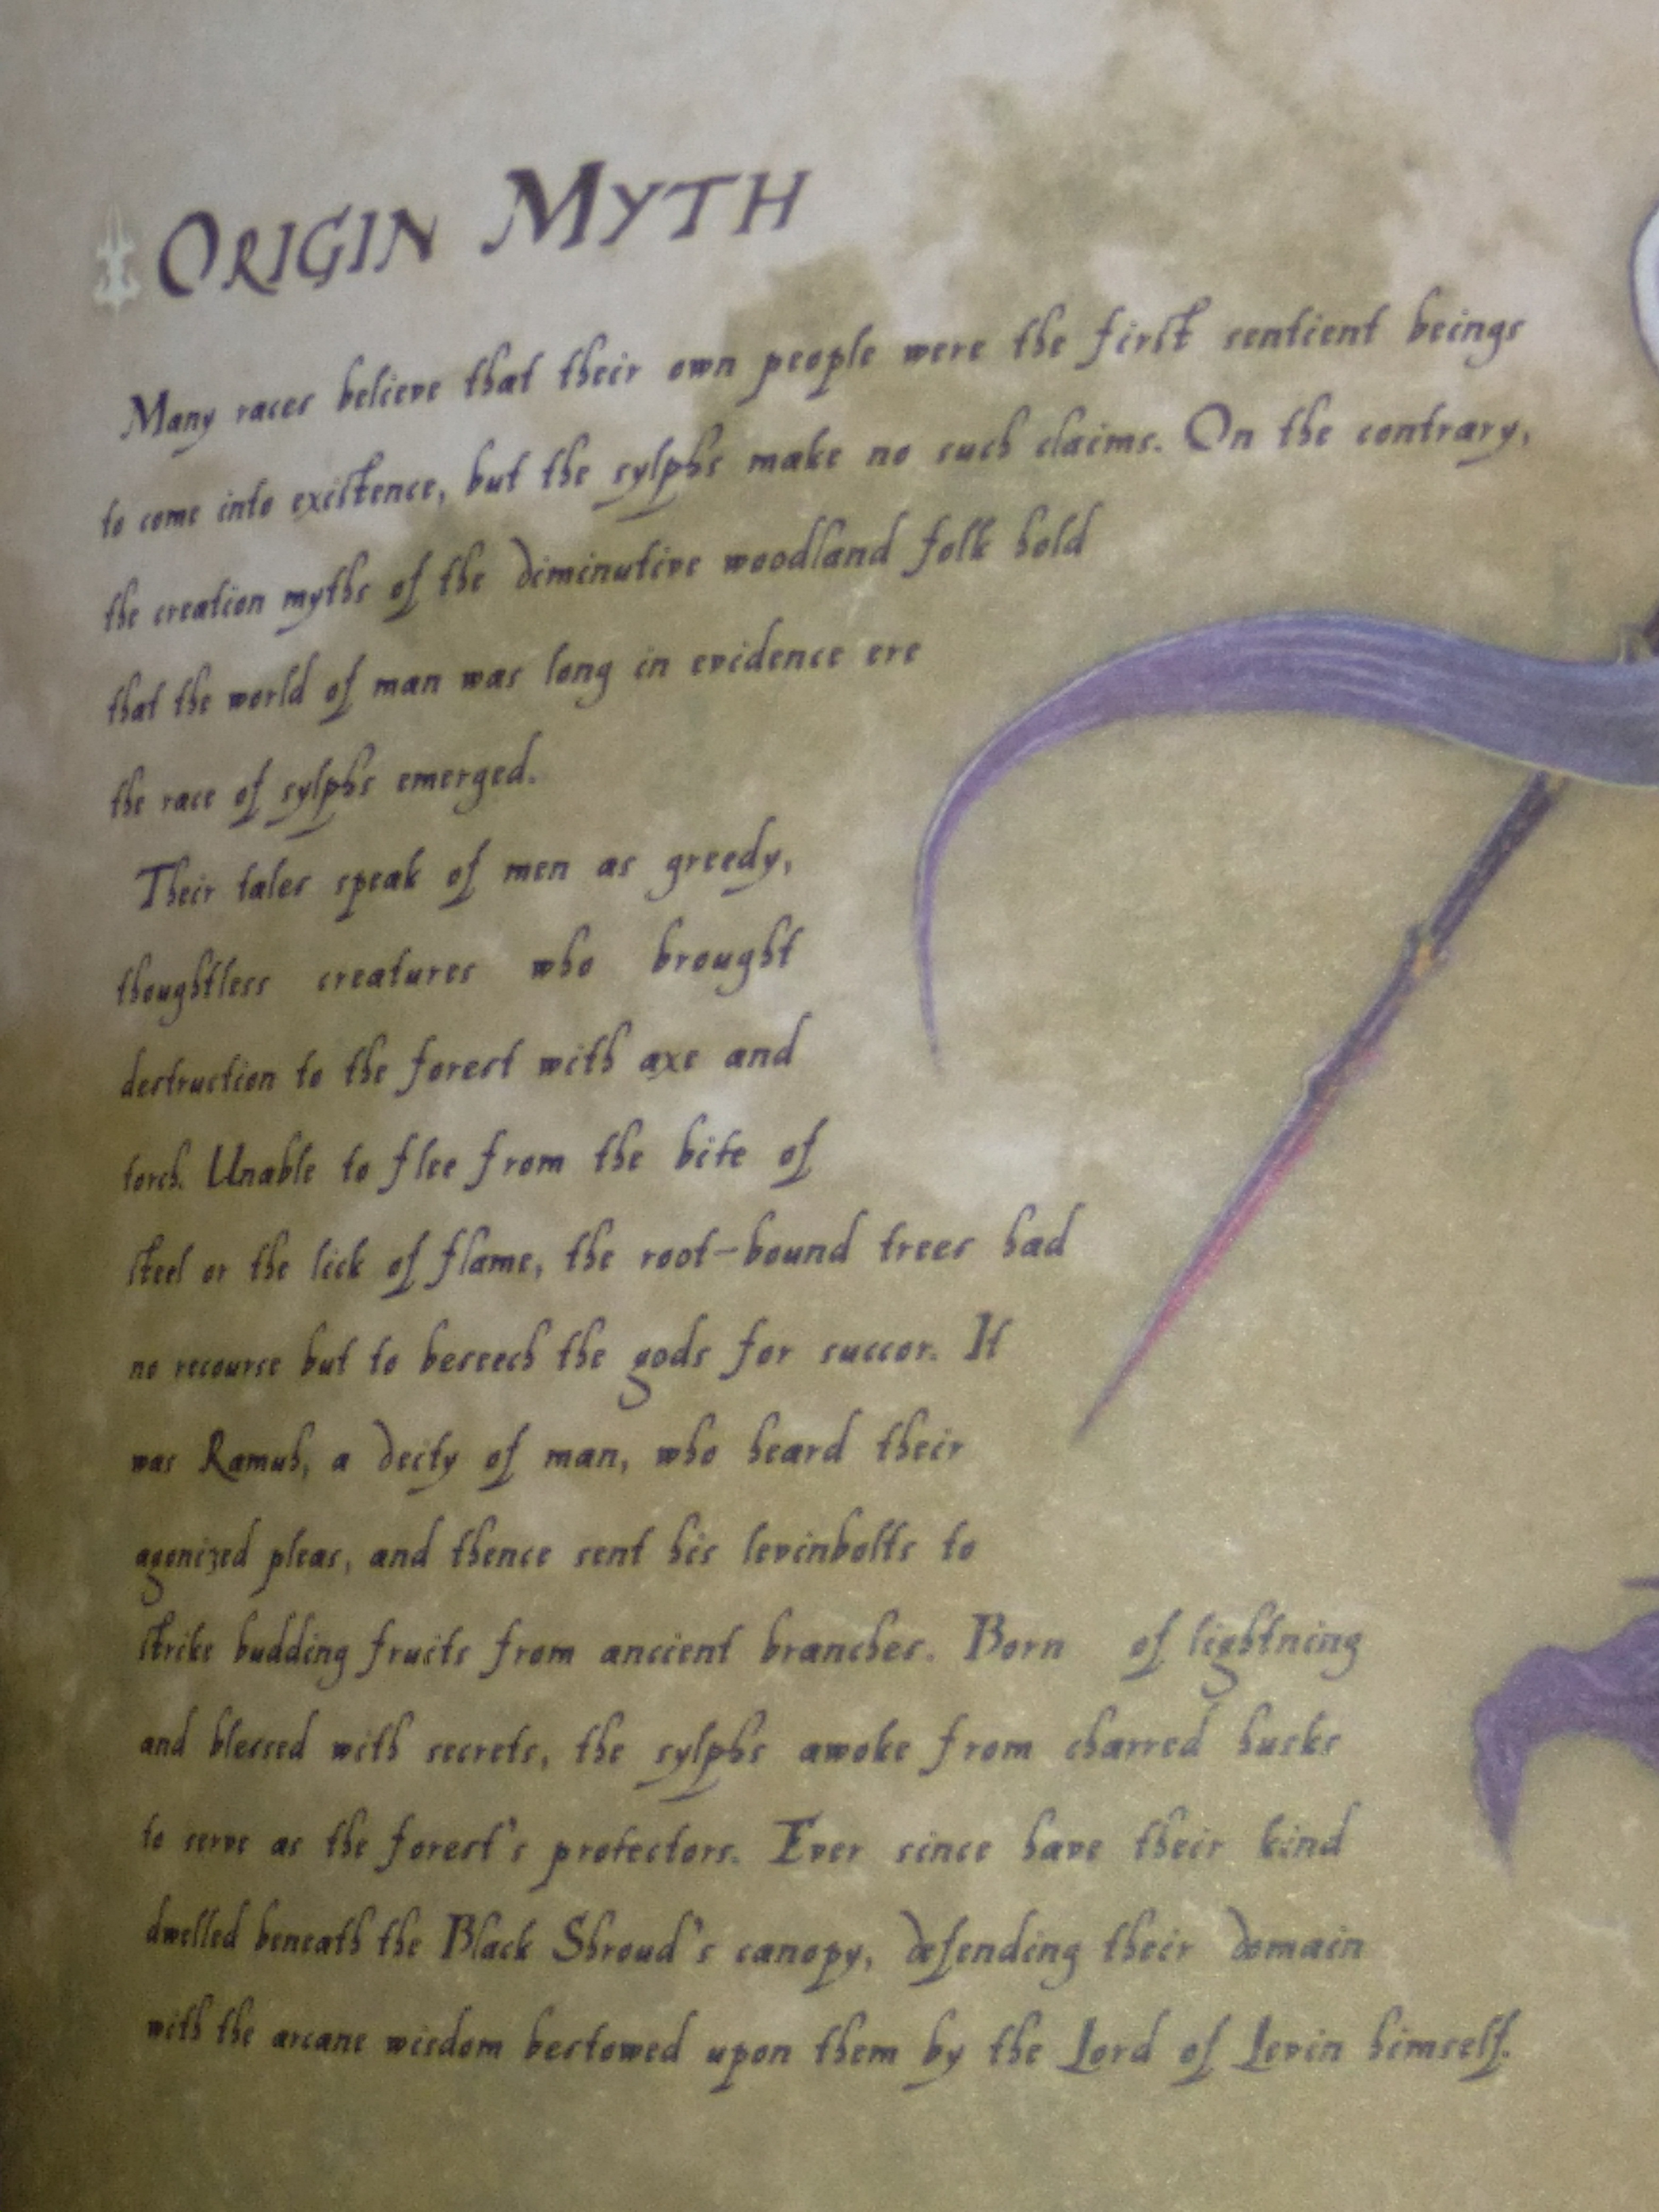 Origin Myth
Many races believe that their own people were the first sentient beings
to come into existence, but the sylphs make no such claims. On the contrary,
the creation myths of the diminutive woodland folk hold
that the world of man was long in evidence ere
the race of sylphs emerged.
Their tales speak of men as greedy,
thoughtless creatures who brought
destruction to the forest with axe and
torch. Unable to flee from the bite of
steel or the lick of flame, the root-bound trees had
no recourse but to beseech the gods for succor. It
was Ramuh, a deity of man, who heard their
agonized pleas, and thence sent his levinbolts to
strike budding fruits from ancient branches. Born of lightning
and blessed with secrets, the sylphs awoke from charred husks
to serve as the forest's protectors. Ever since have their kind
dwelled beneath the Black Shroud's canopy, defending their domain
with the arcane wisdom bestowed upon them by the Lord of Levin himself.